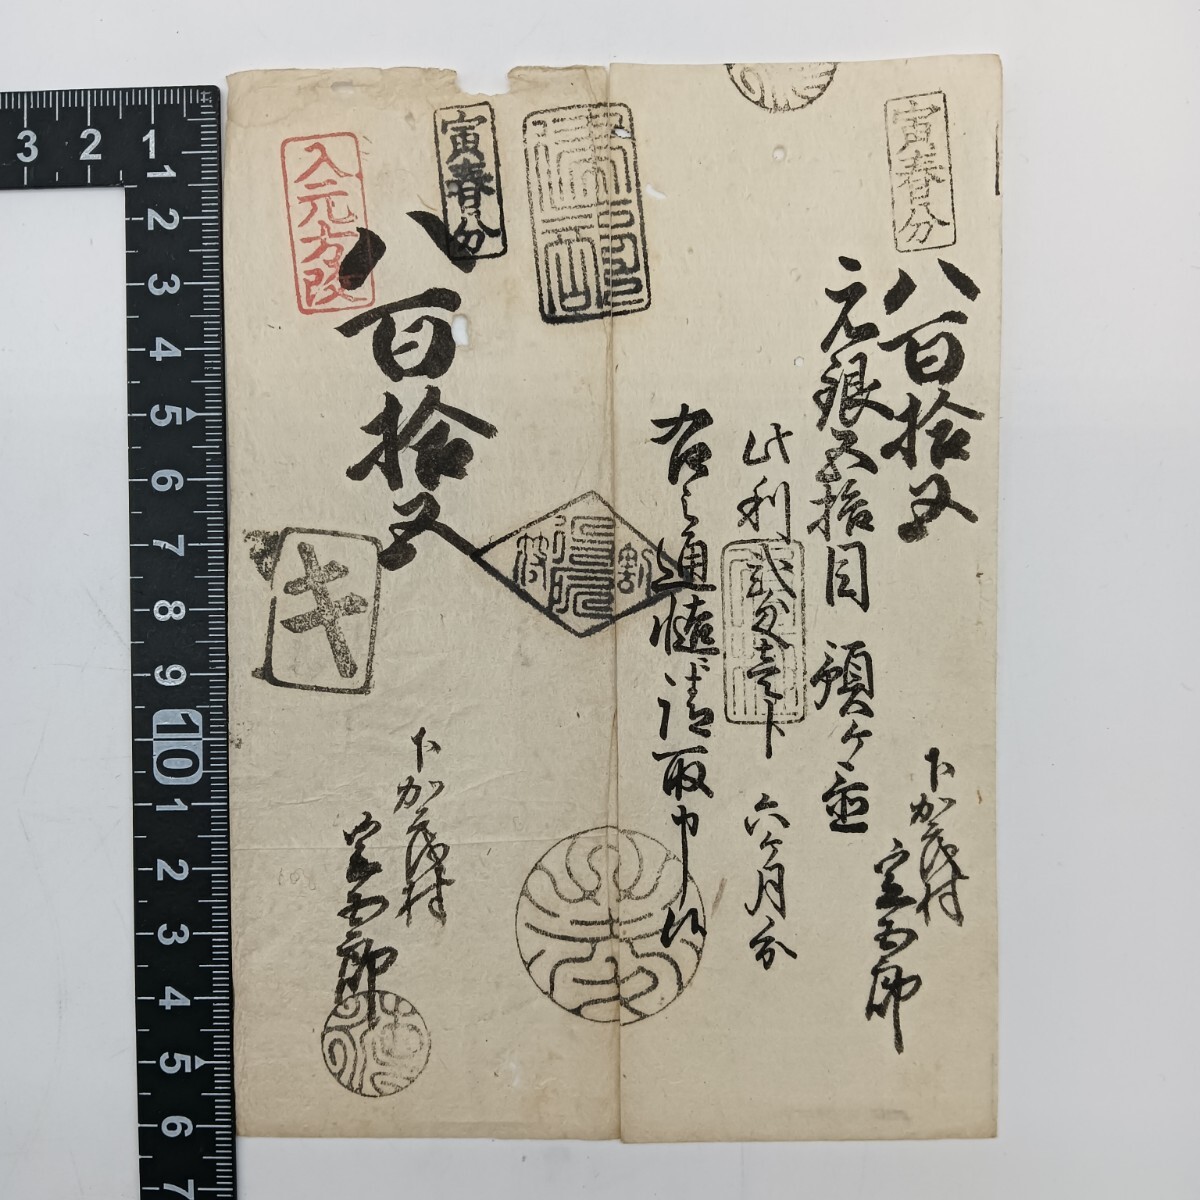 寅春分
八百拾五
元銀五拾目 預ケ
下加茂村
此利 弐分壱卜 六ケ月分
右之通慥ニ請取申候
寅春分
八百拾五
入元方改
割
符
キ
下加茂村
3 2 1
1
2
3
4
5
6
7
8
9
10
1
2
3
4
5
6
7